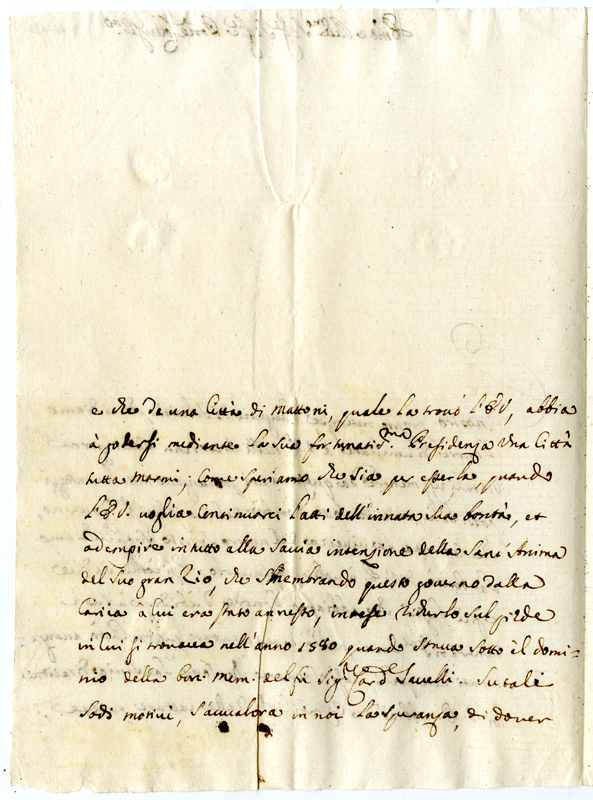 e che da una Città di Mattoni, quale la trovò l'E V, abbia
à godersi mediante la sua fortunatis.ma Presidenza una Città
tutta marmi; Come speriamo che sia per esserla quando
l'E V. voglia Continuarci l'atti dell'innata sua bontà, et
adempire in tutto alla Savia intenzione della Sant' Anima
del suo gran Zio, che smembrando questo governo dalla
Carica à lui era stato annesso, intese ridurlo sul piede
in cui si trovava nell'anno 1580 quando stava sotto il domi-
nio della bon: mem: del fù Sig.r Card.le Savelli. Su tali
sodi motivi, s'avvalora in noi la speranza, di dover